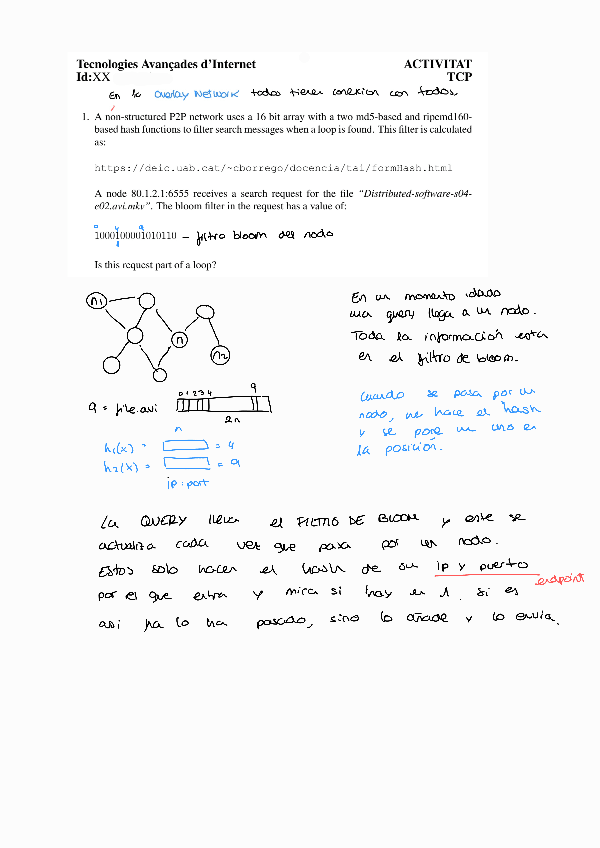 Tecnologies Avançades d'Internet ACTIVITAT
Id:XX TCP
En la Overlay Network todos tienen conexion con todos.
1. A non-structured P2P network uses a 16 bit array with a two md5-based and ripemd160-
based hash functions to filter search messages when a loop is found. This filter is calculated
as:
https://deic.uab.cat/~cborrego/docencia/tai/formHash.html
A node 80.1.2.1:6555 receives a search request for the file "Distributed-software-s04-
e02.avi.mkv". The bloom filter in the request has a value of:
0 4 9
1000100001010110 - filtro bloom del nodo
Is this request part of a loop?
n1
n
n2
En un momento dado
una query llega a un nodo.
Toda la información esta
en el filtro de bloom.
Cuando se pasa por un
nodo, se hace el hash
y se pone un uno en
la posición.
q = file.avi 0 1 2 3 4 9
2n
n
h1(x) = = 4
h2(x) = = 9
ip:port
La QUERY lleva el FILTRO DE BLOOM y este se
actualiza cada vez que pasa por un nodo.
Estos solo hacen el hash de su IP y puerto
endpoint
por el que entra y mira si hay un 1. Si es
asi ya lo ha pasado, sino lo añade y lo envia.